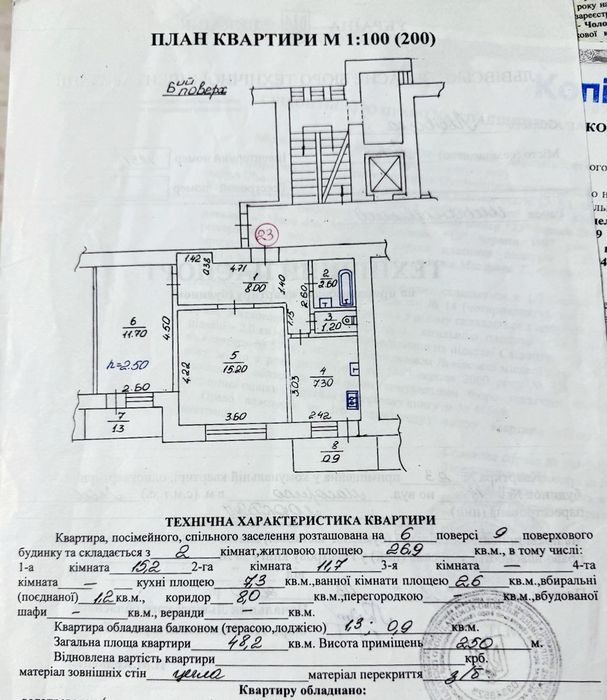 ПЛАН КВАРТИРИ М 1:100 (200)
6ий поверх
23
1.42
0.38
4.71
1
8.00
1.40
2
2.60
2.60
1.15
3
1.20
6
11.70
4.50
h=2.50
2.60
7
1.3
5
15.20
4.22
3.60
4
7.30
3.03
2.42
8
0.9
ТЕХНІЧНА ХАРАКТЕРИСТИКА КВАРТИРИ
Квартира, посімейного, спільного заселення розташована на 6 поверсі 9 поверхового
будинку та складається з 2 кімнат,житловою площею 26,9 кв.м., в тому числі:
1-а кімната 15,2 2-га кімната 11,7 3-я кімната — 4-та
кімната — кухні площею 7,3 кв.м.,ванної кімнати площею 2,6 кв.м.,вбиральні
(поєднаної) 1,2 кв.м., коридор 8,0 кв.м.,перегородкою — кв.м.,вбудованої
шафи — кв.м., веранди — кв.м.
Квартира обладнана балконом (терасою,лоджією) 1,3 ; 0,9 кв.м.
Загальна площа квартири 48,2 кв.м. Висота приміщень 2,50 м.
Відновлена вартість квартири крб.
матеріал зовнішніх стін цегла матеріал перекриття з/б
Квартиру обладнано: